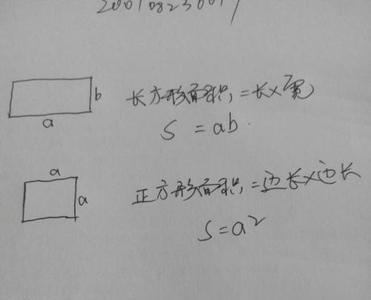 b
长方形面积=长×宽
a
S=ab.
a
a
正方形面积=边长×边长
S=a²